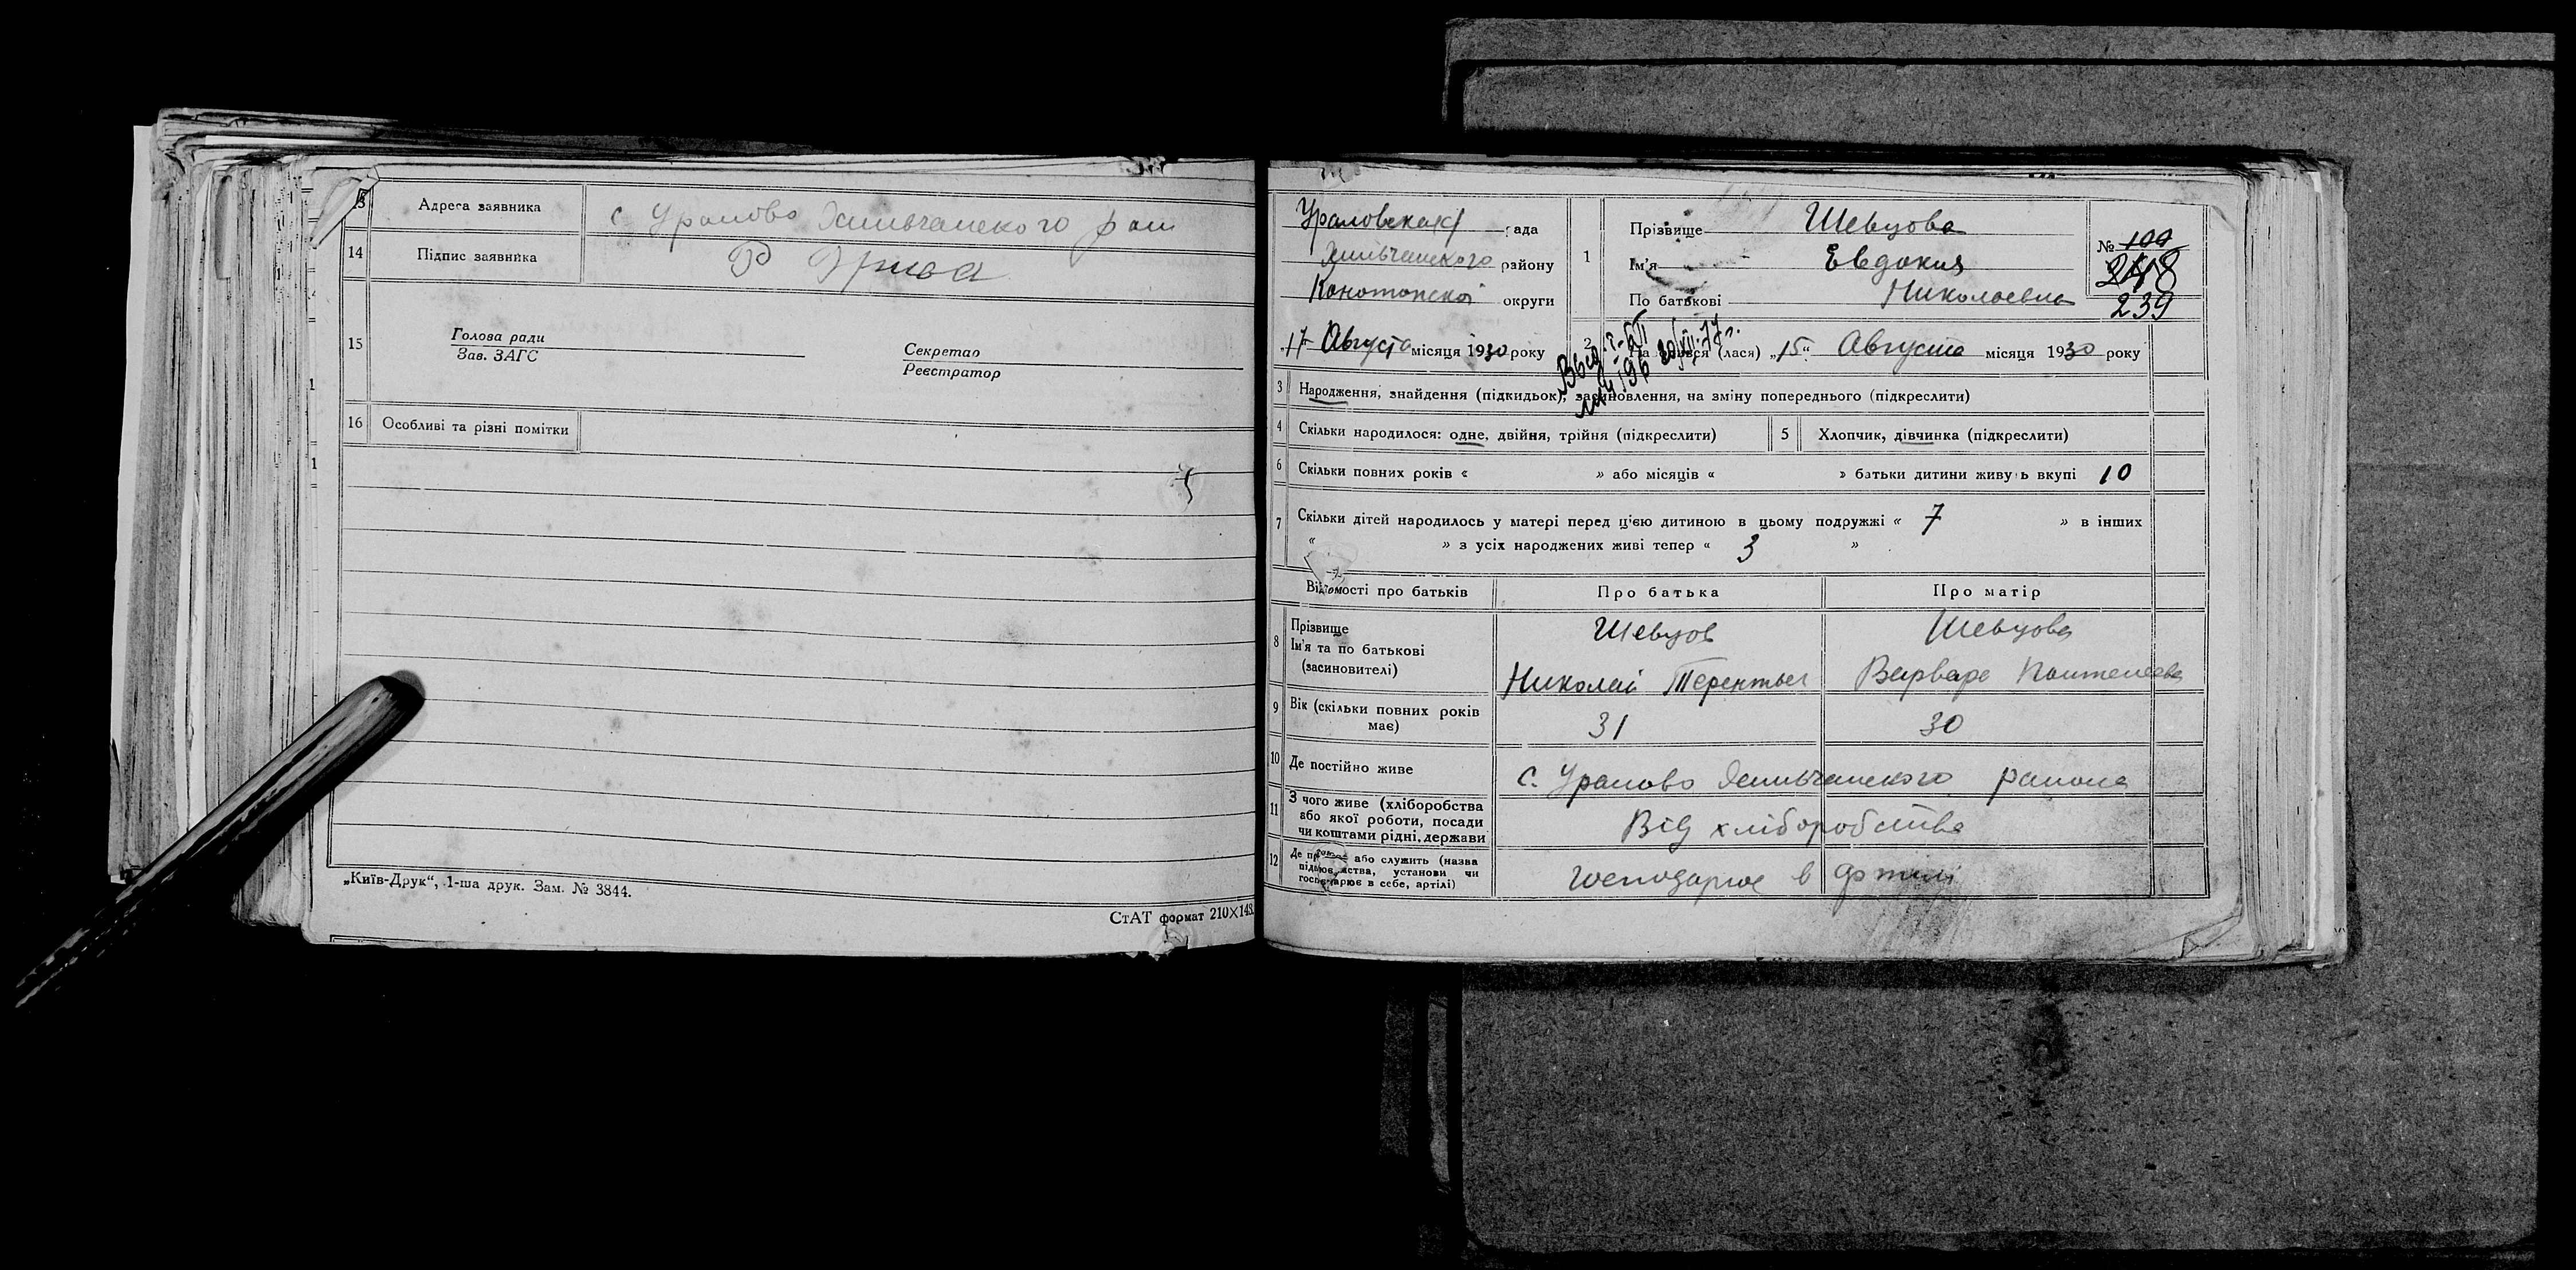 13 Адреса заявника с Уралово Хильчанского рай
14 Підпис заявника
15 Голова ради
Зав. ЗАГС
Секретар
Реєстратор
16 Особливі та різні помітки
„Київ-Друк“, 1-ша друк. Зам. № 3844.
СтАТ формат 210×148.
Ураловская рада
Хильчанского району
Конотопской округи
17 Августа місяця 1930 року
1 Прізвище Шевцова
Ім'я Евдокия
По батькові Николаевна
№ 199
248
239
Выд.
№ 196 20/VII-77 г.
2 Народився (лася) „15“ Августа місяця 1930 року
3 Народження, знайдення (підкидьок), засиновлення, на зміну попереднього (підкреслити)
4 Скільки народилося: одне, двійня, трійня (підкреслити)
5 Хлопчик, дівчинка (підкреслити)
6 Скільки повних років « » або місяців « » батьки дитини живуть вкупі 10
7 Скільки дітей народилось у матері перед цією дитиною в цьому подружжі « 7 » в інших
« » з усіх народжених живі тепер « 3 »
Відомості про батьків Про батька Про матір
8 Прізвище
Ім'я та по батькові
(засиновителі)
Шевцов Шевцова
Николай Терентьев Варвара
9 Вік (скільки повних років
має)
31 30
10 Де постійно живе с. Уралово Хильчанского района
11 З чого живе (хліборобства
або якої роботи, посади
чи коштами рідні, держави
Від хліборобства
12 Де працює або служить (назва
підприємства, установи чи
господарює в себе, артілі)
господарює в